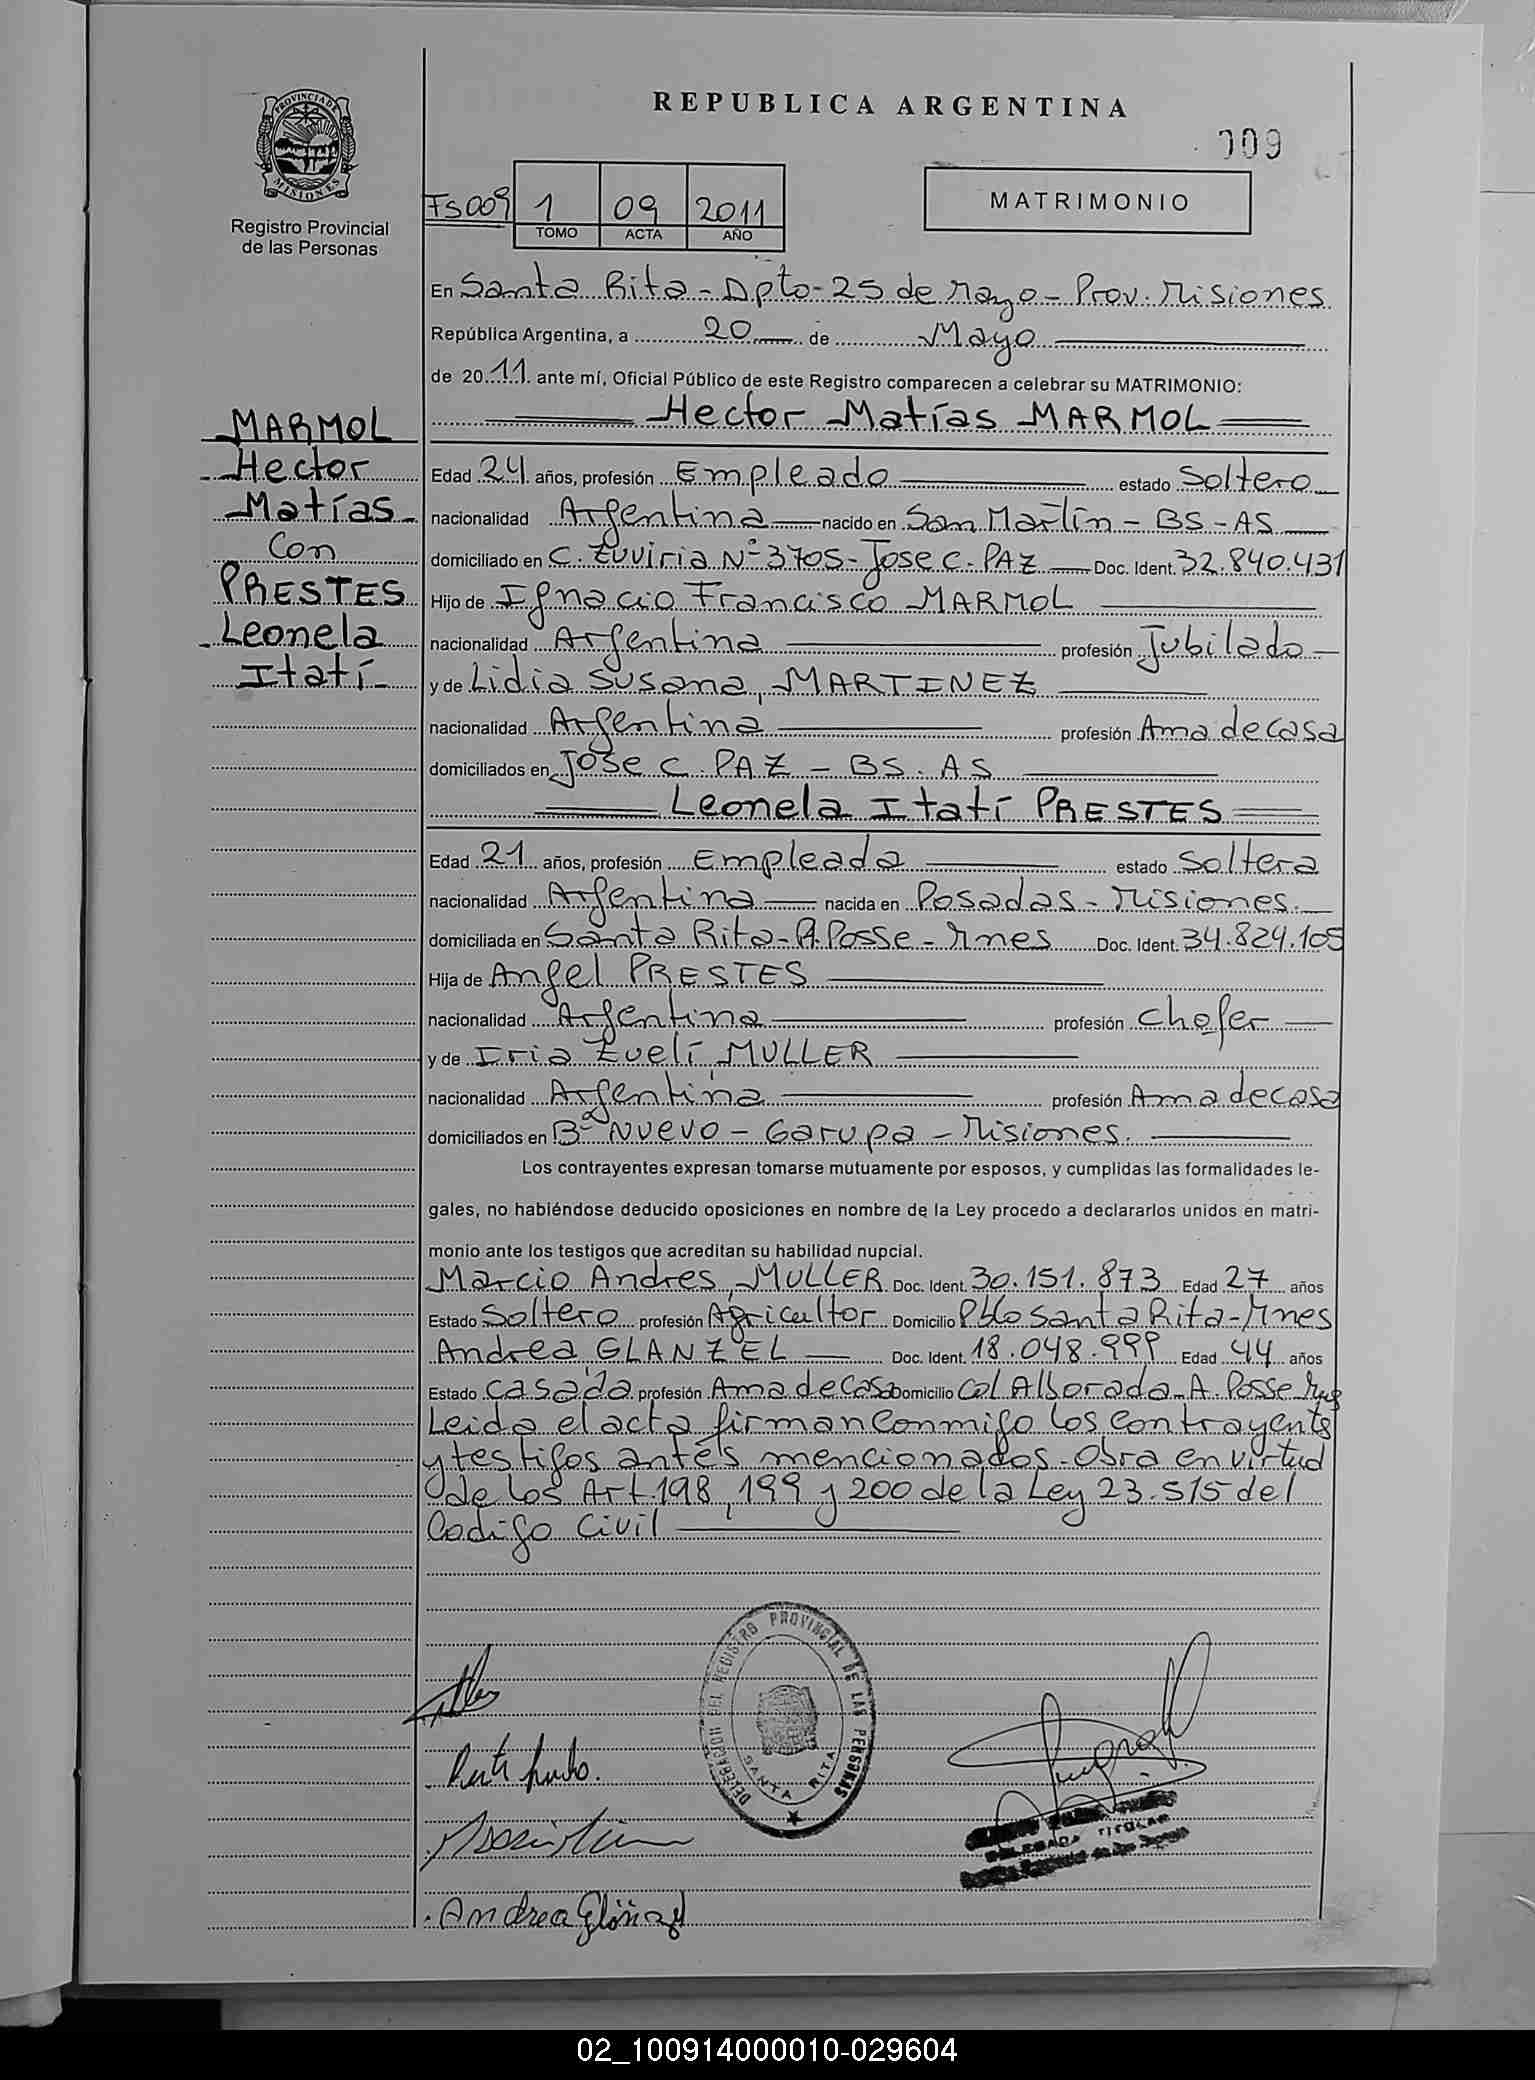 REPUBLICA ARGENTINA
009
PROVINCIA DE
MISIONES
Registro Provincial
de las Personas
Fs009 1 09 2011
TOMO ACTA AÑO
MATRIMONIO
En Santa Rita - Dpto - 25 de Mayo - Prov. Misiones
República Argentina, a 20 de Mayo
de 2011 ante mí, Oficial Público de este Registro comparecen a celebrar su MATRIMONIO:
Hector Matías MARMOL
MARMOL
Hector
Matías
Con
PRESTES
Leonela
Itatí
Edad 24 años, profesión Empleado estado Soltero
nacionalidad Argentina nacido en San Martín - BS - AS
domiciliado en C. Zuviria Nº 3705 - Jose C. PAZ Doc. Ident. 32.840.431
Hijo de Ignacio Francisco MARMOL
nacionalidad Argentina profesión Jubilado
y de Lidia Susana, MARTINEZ
nacionalidad Argentina profesión Ama de casa
domiciliados en Jose C PAZ - BS. AS
Leonela Itatí PRESTES
Edad 21 años, profesión Empleada estado Soltera
nacionalidad Argentina nacida en Posadas - Misiones.
domiciliada en Santa Rita - A. Posse - Mnes Doc. Ident. 34.824.105
Hija de Angel PRESTES
nacionalidad Argentina profesión Chofer
y de Iria Zuelí, MULLER
nacionalidad Argentina profesión Ama de casa
domiciliados en Bº Nuevo - Garupa - Misiones.
Los contrayentes expresan tomarse mutuamente por esposos, y cumplidas las formalidades le-
gales, no habiéndose deducido oposiciones en nombre de la Ley procedo a declararlos unidos en matri-
monio ante los testigos que acreditan su habilidad nupcial.
Marcio Andres, MULLER Doc. Ident. 30.151.873 Edad 27 años
Estado Soltero profesión Agricultor Domicilio Pblo Santa Rita - Mnes
Andrea, GLANZEL Doc. Ident. 18.048.999 Edad 44 años
Estado casada profesión Ama de Casa Domicilio Col Alborada - A. Posse Mnes
Leida el acta firman conmigo los contrayents
y testigos antes mencionados - Obra en virtud
de los Art 198, 199 y 200 de la Ley 23.515 del
Codigo Civil
DELEGACION DEL REGISTRO PROVINCIAL DE LAS PERSONAS
SANTA RITA
DELEGADA TITULAR
Andrea Glänzel
02_100914000010-029604